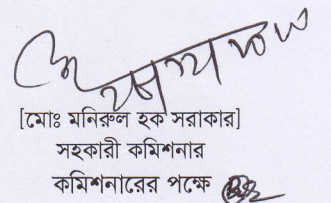 [মোঃ মনিরুল হক সরাকার]
সহকারী কমিশনার
কমিশনারের পক্ষে